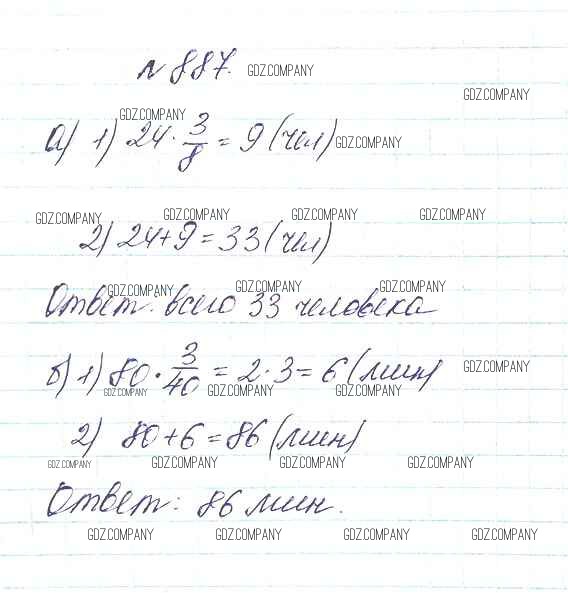 № 887.
GDZ.COMPANY
GDZ.COMPANY
GDZ.COMPANY
а) 1) 24 · 3/8 = 9 (чел)
GDZ.COMPANY
GDZ.COMPANY GDZ.COMPANY GDZ.COMPANY GDZ.COMPANY
2) 24+9=33 (чел)
GDZ.COMPANY GDZ.COMPANY GDZ.COMPANY
Ответ: всего 33 человека
б) 1) 80 · 3/40 = 2·3 = 6 (мин)
GDZ.COMPANY
GDZ.COMPANY GDZ.COMPANY GDZ.COMPANY
2) 80+6=86 (мин)
GDZ.COMPANY GDZ.COMPANY GDZ.COMPANY GDZ.COMPANY
Ответ: 86 мин.
GDZ.COMPANY GDZ.COMPANY GDZ.COMPANY GDZ.COMPANY